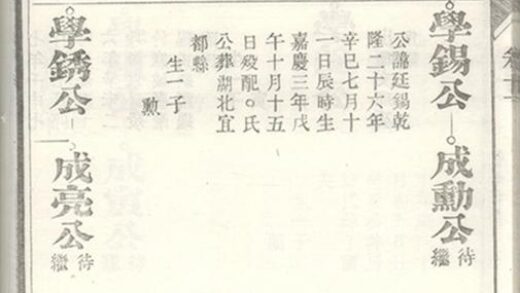 學錫公
成勳公
待繼
公諱廷錫乾
隆二十六年
辛巳七月十
一日辰時生
嘉慶三年戊
午十月十五
日歿配○氏
公葬湖北宜
都縣
生一子
勲
學銹公
成亮公
待繼